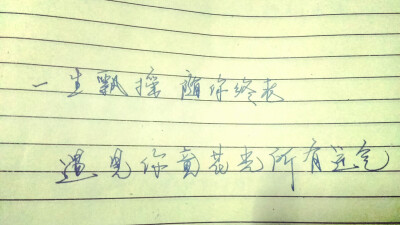 一生飘摇 随你终老
遇见你竟花光所有运气